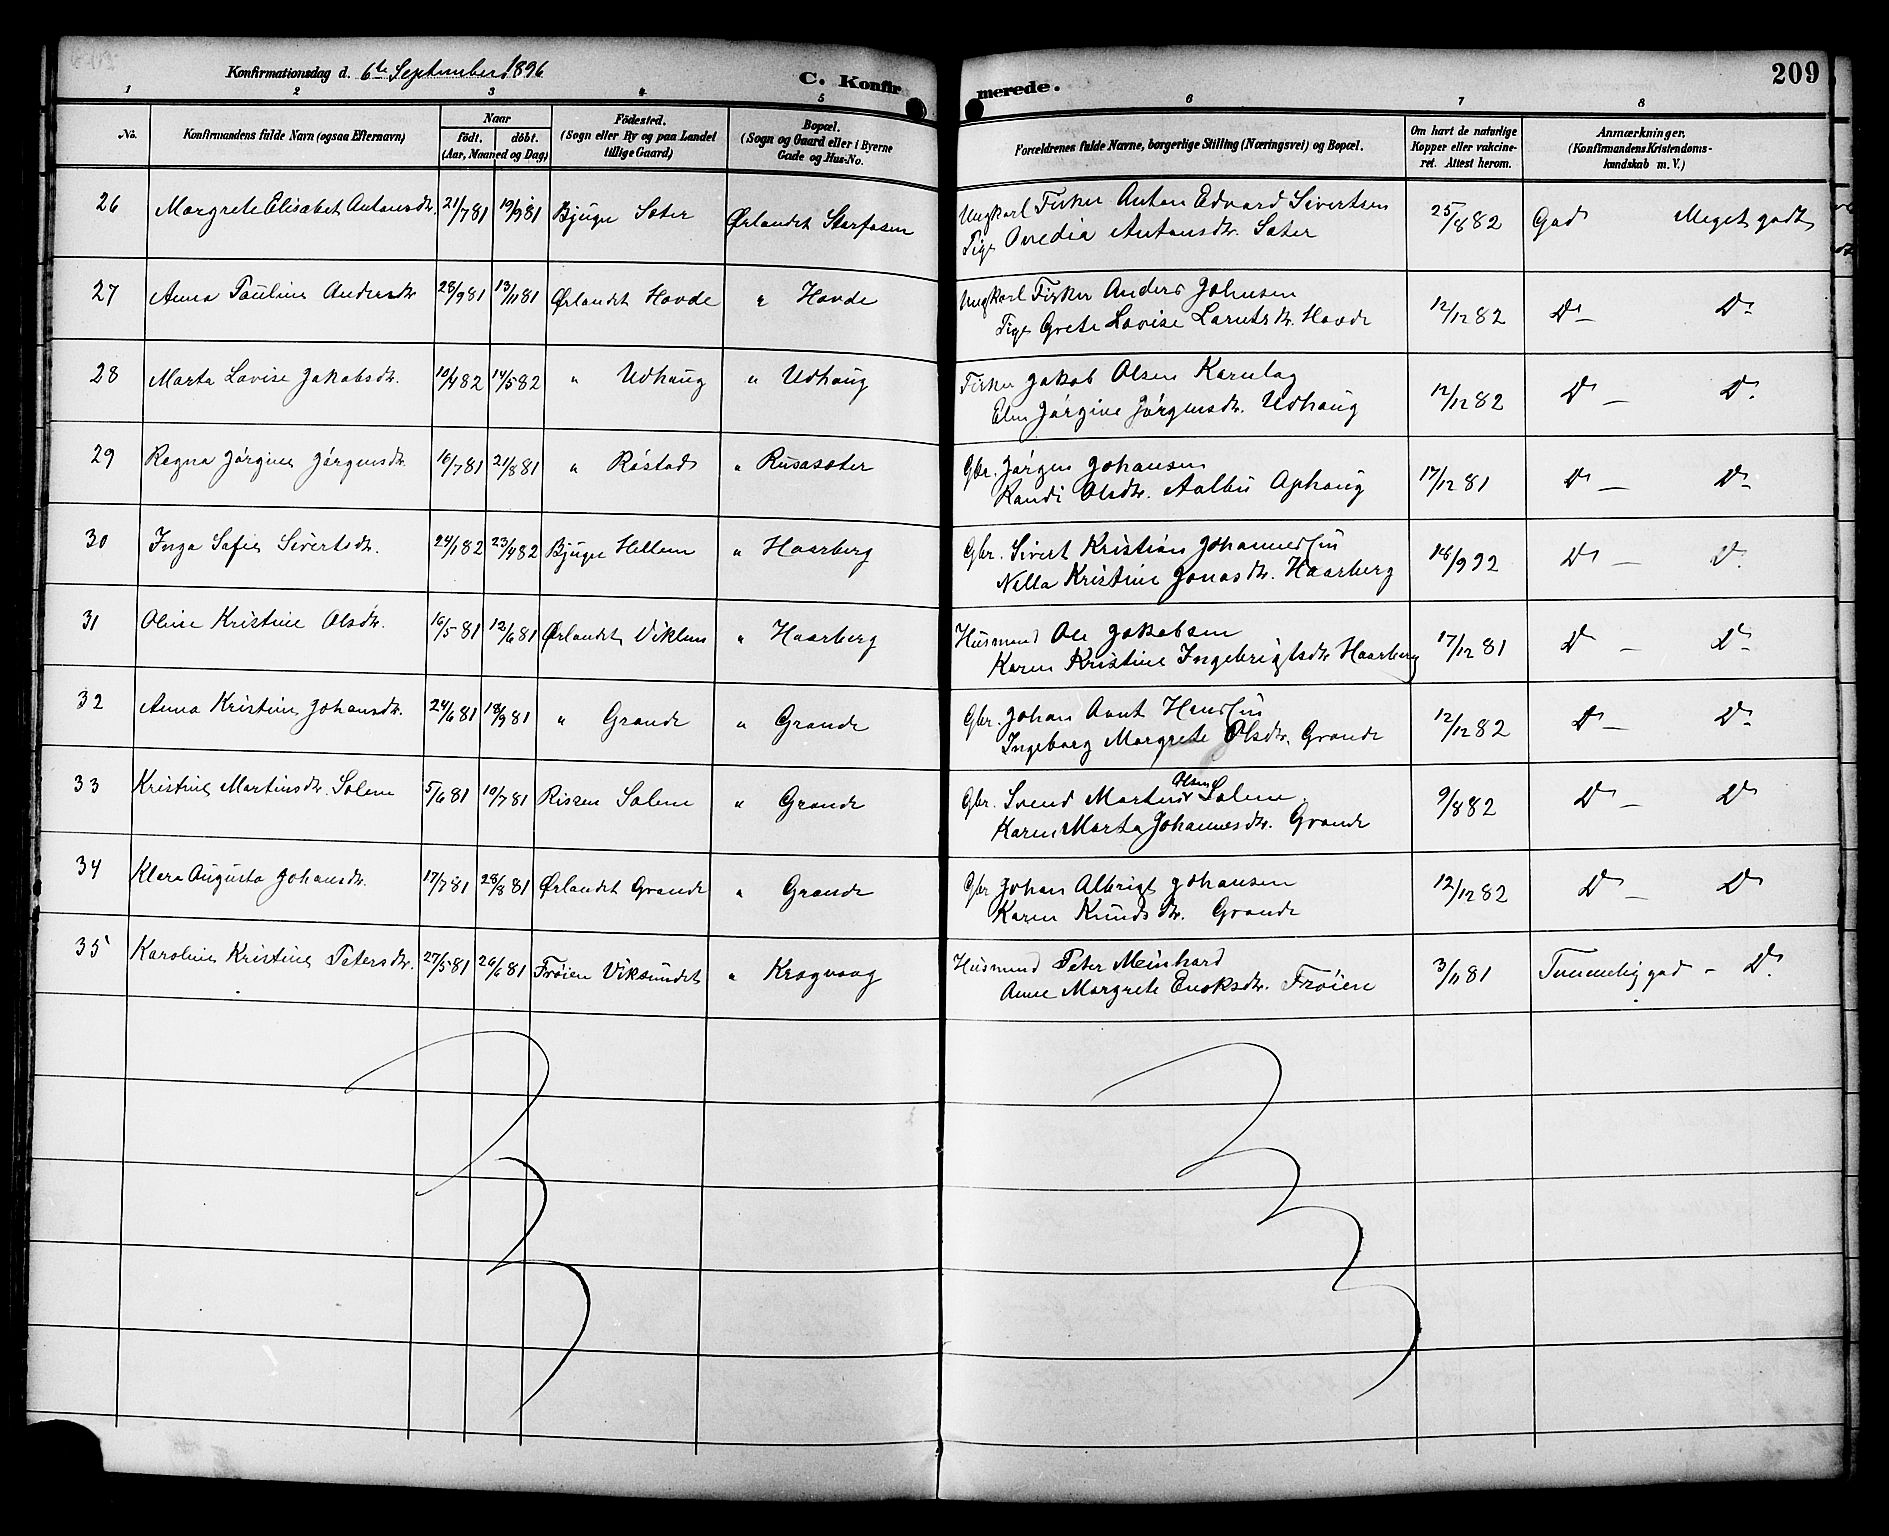 Konfirmationsdag d. 6te September 1896
C. Konfirmerede.
209
1 2 3 4 5 6 7 8
No.
Konfirmandens fulde Navn (ogsaa Efternavn)
Naar
født. døbt.
(Aar, Maaned og Dag)
Fødested.
(Sogn eller By og paa Landet
tillige Gaard)
Bopæl.
(Sogn og Gaard eller i Byerne
Gade og Hus-No.
Forældrenes fulde Navne, borgerlige Stilling (Næringsvei) og Bopæl.
Om havt de naturlige
Kopper eller vakcine-
ret. Attest herom.
Anmærkninger.
(Konfirmandens Kristendoms-
kundskab m. V.)
26 Margrete Elisabet Antonsdtr. 21/7 81 19/9 81 Bjugn Sæter Ørlandet Storfosen Ungkarl Fisker Anton Edvard Sivertsen 25/8 82 God Meget godt
Pige Ovedia Antonsdtr. Sæter
27 Anna Pauline Andersdtr 28/9 81 13/11 81 Ørlandet Hovde " Hovde Ungkarl Fisker Anders Johnsen 12/12 82 Do – Do
Pige Grete Lovise Larntsdtr. Hovde
28 Marta Lovise Jakobsdtr. 10/4 82 14/5 82 " Udhaug " Udhaug Fisker Jakob Olsen Karnlag 12/12 82 Do – Do
Elen Jørgine Jørgensdtr. Udhaug
29 Ragna Jørgine Jørgensdtr. 16/7 81 21/8 81 " Røstad " Rusasæter Gbr. Jørgen Johansen 17/12 81 Do – Do
Randi Olsdtr. Aalbu Ophaug
30 Inga Sofie Sivertsdtr. 24/1 82 23/4 82 Bjugn Hellem " Haarberg Gbr. Sivert Kristian Johannessen 18/9 92 Do – Do
Nella Kristine Jonasdtr. Haarberg
31 Oline Kristine Olsdtr. 16/5 81 12/6 81 Ørlandet Viklem " Haarberg Husmand Ole Jakobsen 17/12 81 Do – Do
Karen Kristine Ingebrigtsdtr Haarberg
32 Anna Kristine Johansdtr. 24/6 81 18/9 81 " Grande " Grande Gbr. Johan Arnt Hanssen 12/12 82 Do – Do
Ingeborg Margrete Olsdtr. Grande
33 Kristine Martinsdtr. Solem 5/6 81 10/7 81 Rissen Solem " Grande Gbr. Svend Martin Olsen Solem 9/8 82 Do – Do
Karen Marta Johannesdtr. Grande
34 Klara Augusta Johansdtr. 17/7 81 28/8 81 Ørlandet Grande " Grande Gbr Johan Albrigt Johansen 12/12 82 Do – Do
Karen Knudsdtr. Grande
35 Karoline Kristine Petersdtr. 27/5 81 26/6 81 Frøien Viksundet " Kragvaag Husmand Peter Meinhard 3/11 81 Temmelig god – Do
Anne Margrete Enoksdtr. Frøien